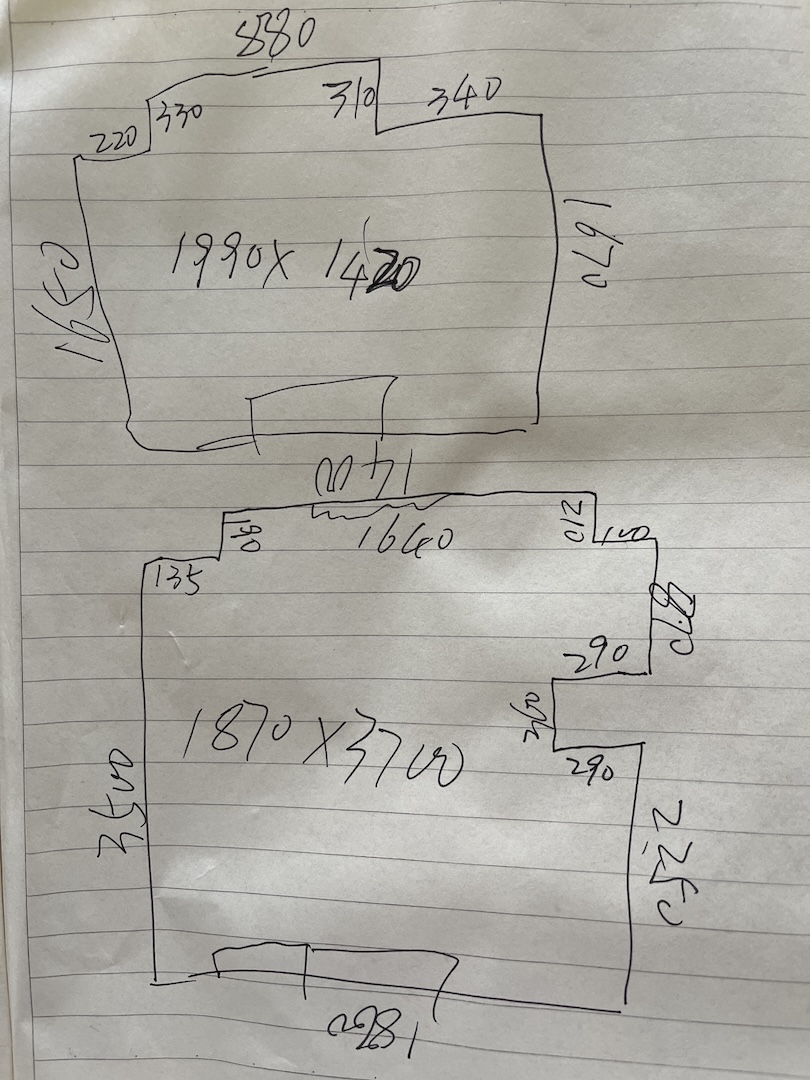 880
330
310
340
220
1990 X 1420
1650
1670
1400
190
1640
210
100
135
870
290
360
1870 X 3700
290
3500
2250
1860